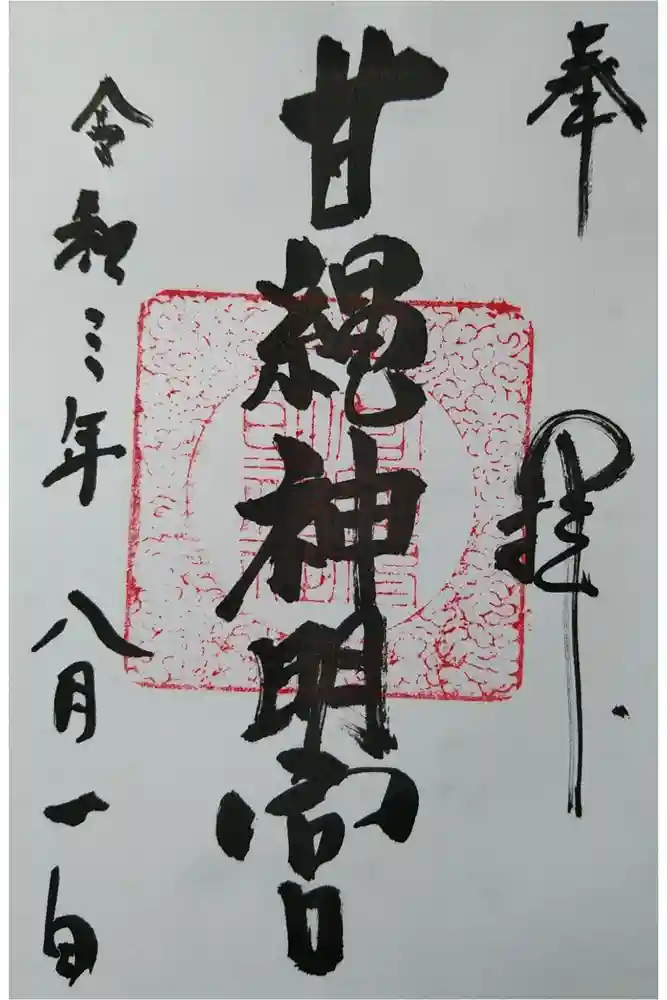 奉拝
甘縄神明宮
令和三年八月一日